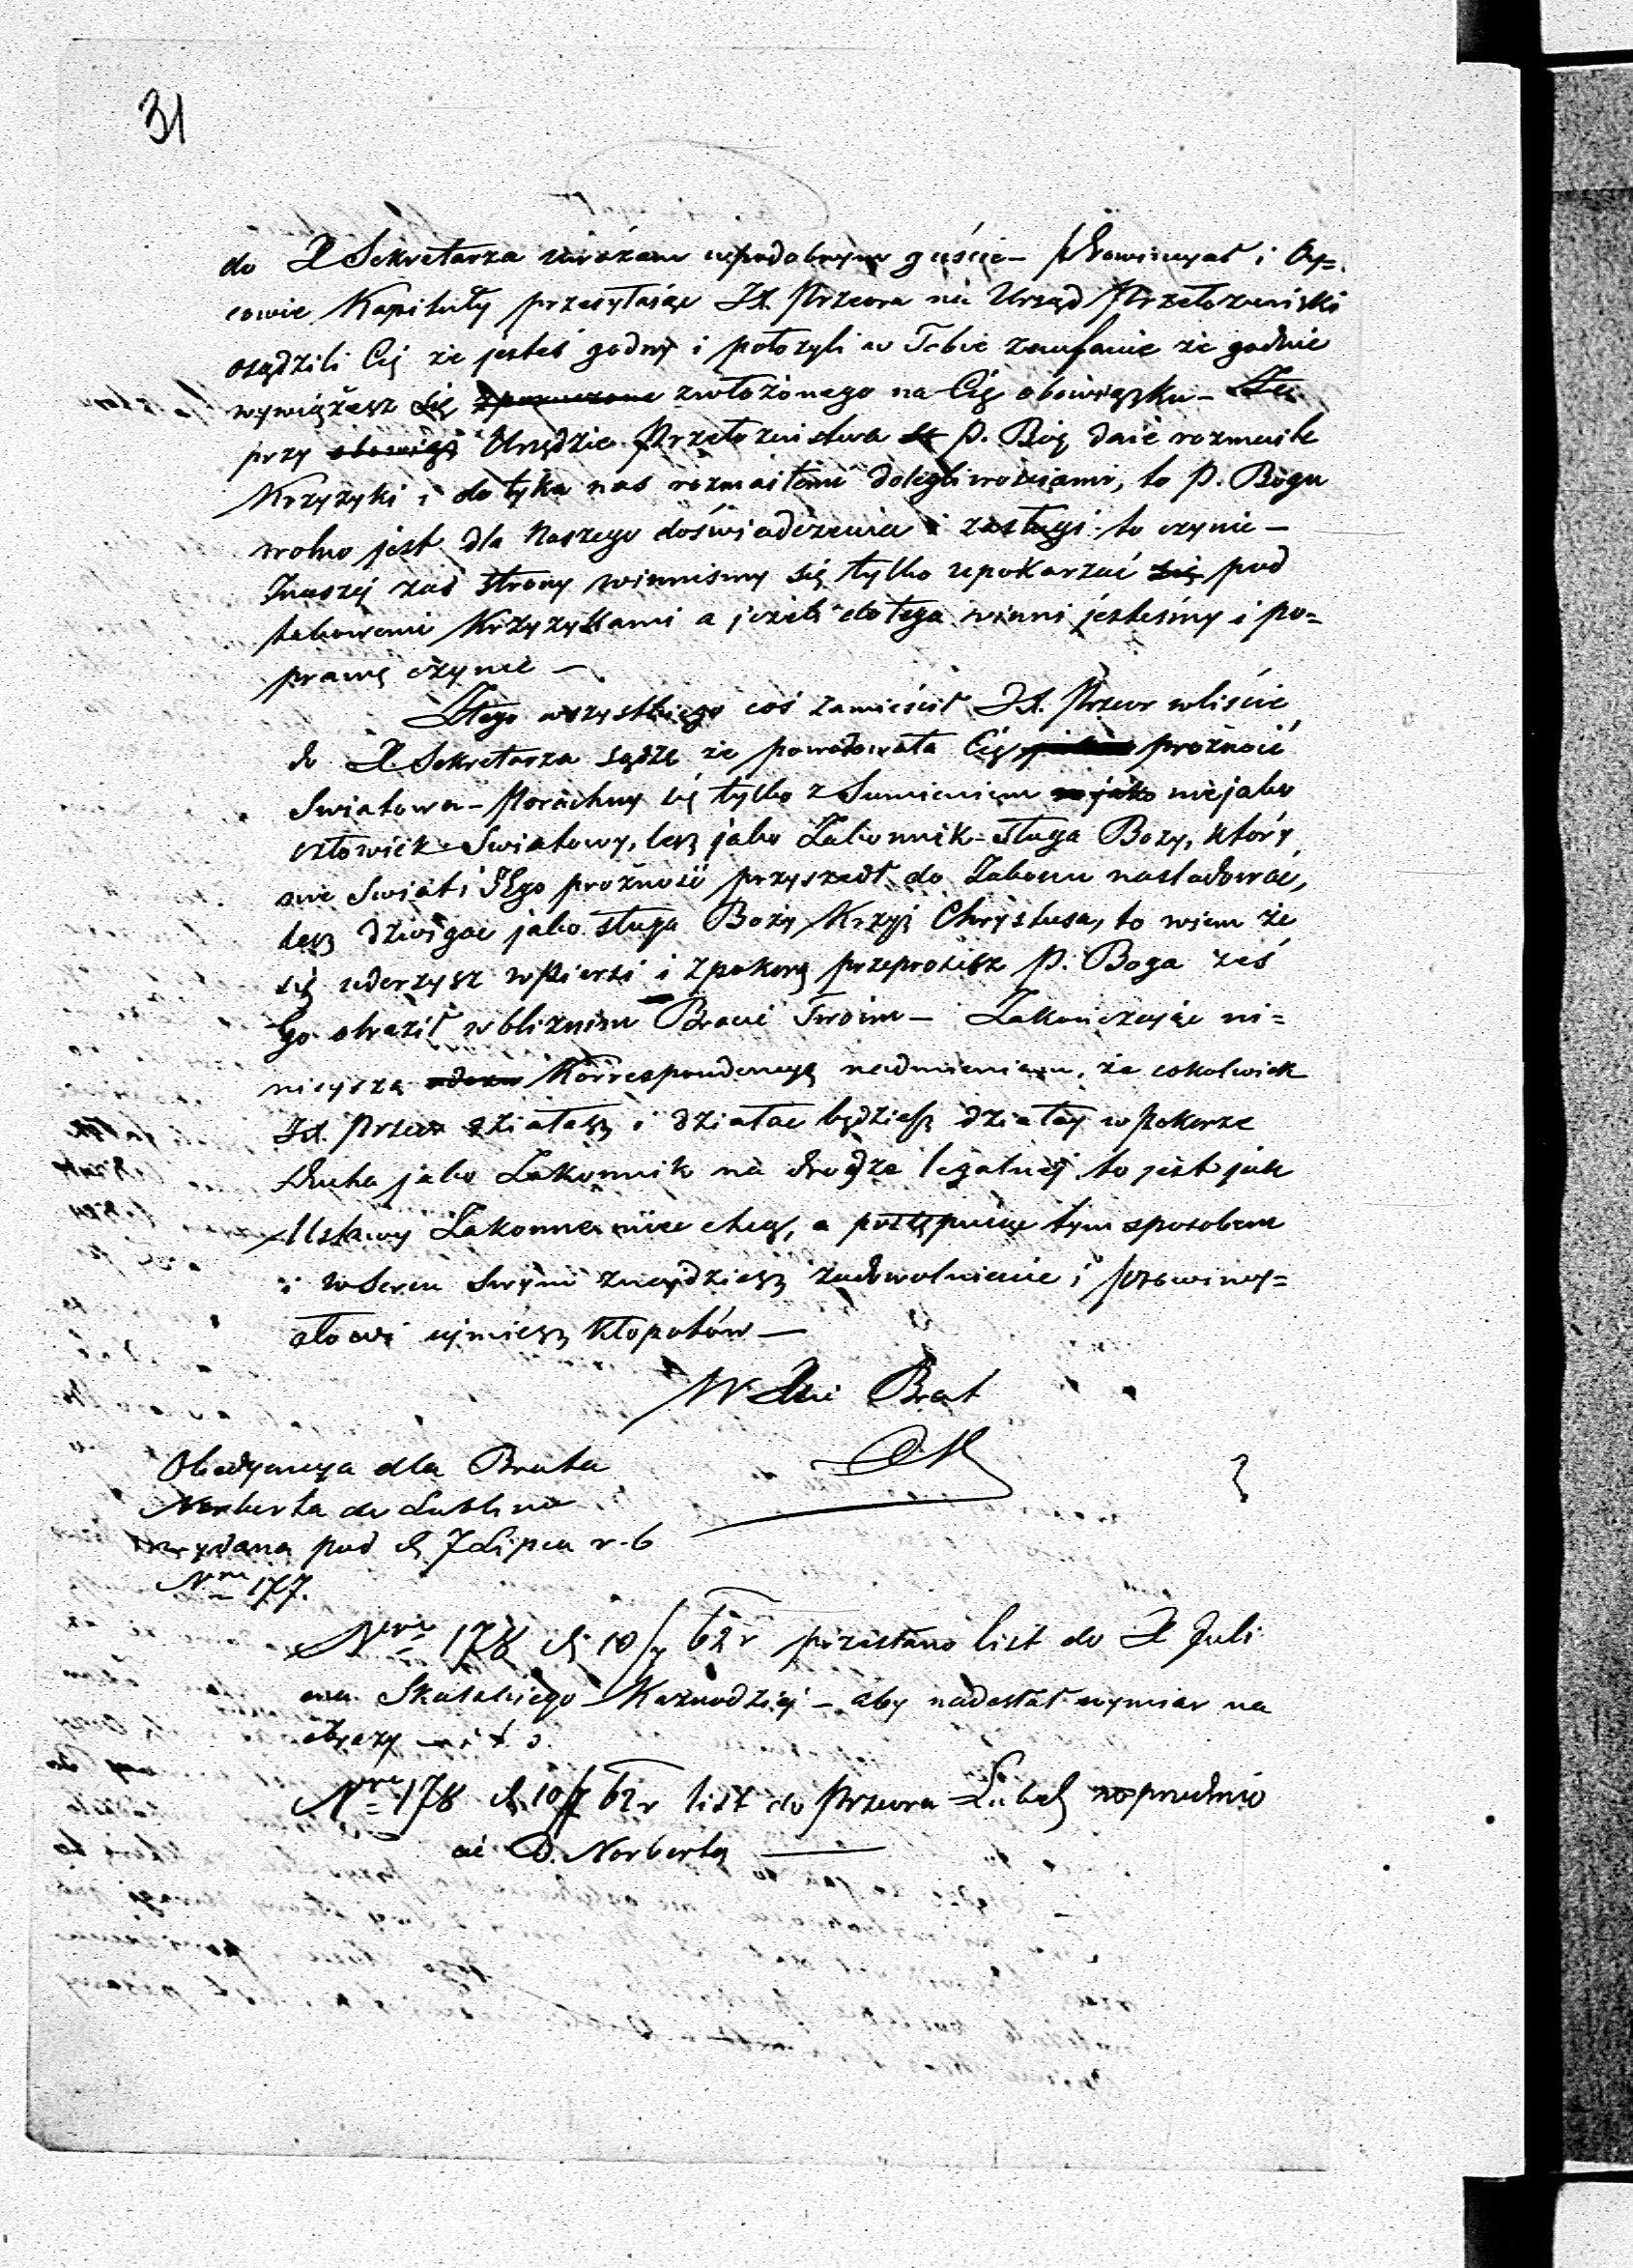 31
do X Sekretarza wyrażam w podobnym guście – Prowincyał i Oy=
cowie Kapituły przesyłaiąc Xd. Przeora na Urząd Przełożeński
osądzili Cię że jesteś godny i położyli w Tobie zaufanie że godnie
wywiążesz się włożonego na Cię obowiązku –
przy Urzędzie Przełożeństwa P. Bóg daie rozmaite
Krzyzyki i dotyka nas rozmaitemi dolegliwościami, to P. Bogu
wolno jest dla Naszego doświadczenia i zasługi to czynic –
Znaszéj zaś strony winnismy się tylko upokarzać się pod
takowemi Krzyzykami a jeżeli do tego winni jesteśmy i po=
prawę czynic –
Ztego wszystkiego coś zamieścił Xd. Przeor wliście
do X. Sekretarza sądzę że powodowała Cię prożność
Swiatowa – Porachuy się tylko z Sumieniem niejako
człowiek Swiatowy, lecz jako Zakonnik – Sługa Bozy, który
nie Swiat i Jego prożność przyszedł do Zakonu nasladować,
lecz dzwigac jako sługa Bozy Krzyż Chrystusa, to wiem że
się uderzysz w Piersi i z pokorą przeprosisz P. Boga żeś
Go obraził w bliznim Bracie Twoim – Zakończając ni=
nieyszą Korrespondencyą nadmieniam, że cokolwiek
Xd. Przeor działasz i działac będziesz działay w Pokorze
Ducha jako Zakonnik na drodze legalnéj to jest jak
Ustawy Zakonne miec chcą, a postępuiąc tym sposobem
i w Sercu Swym znaydziesz zadowolnienie i Prowincy=
ałowi uymiesz kłopotów –
W Xsie Brat
Obedyencya dla Brata
Norberta do Lublina
wydana pod d. 7 Lipca r. b
Nro 177.
Nro 178 d. 10/7 62 r przesłano list do X Juli
ana Skalskiego Kaznodziei – aby nadesłał wymiar na
obrazy
Nro 178 d 10/7 62 r list do Przeora Lubel
D. Norberta